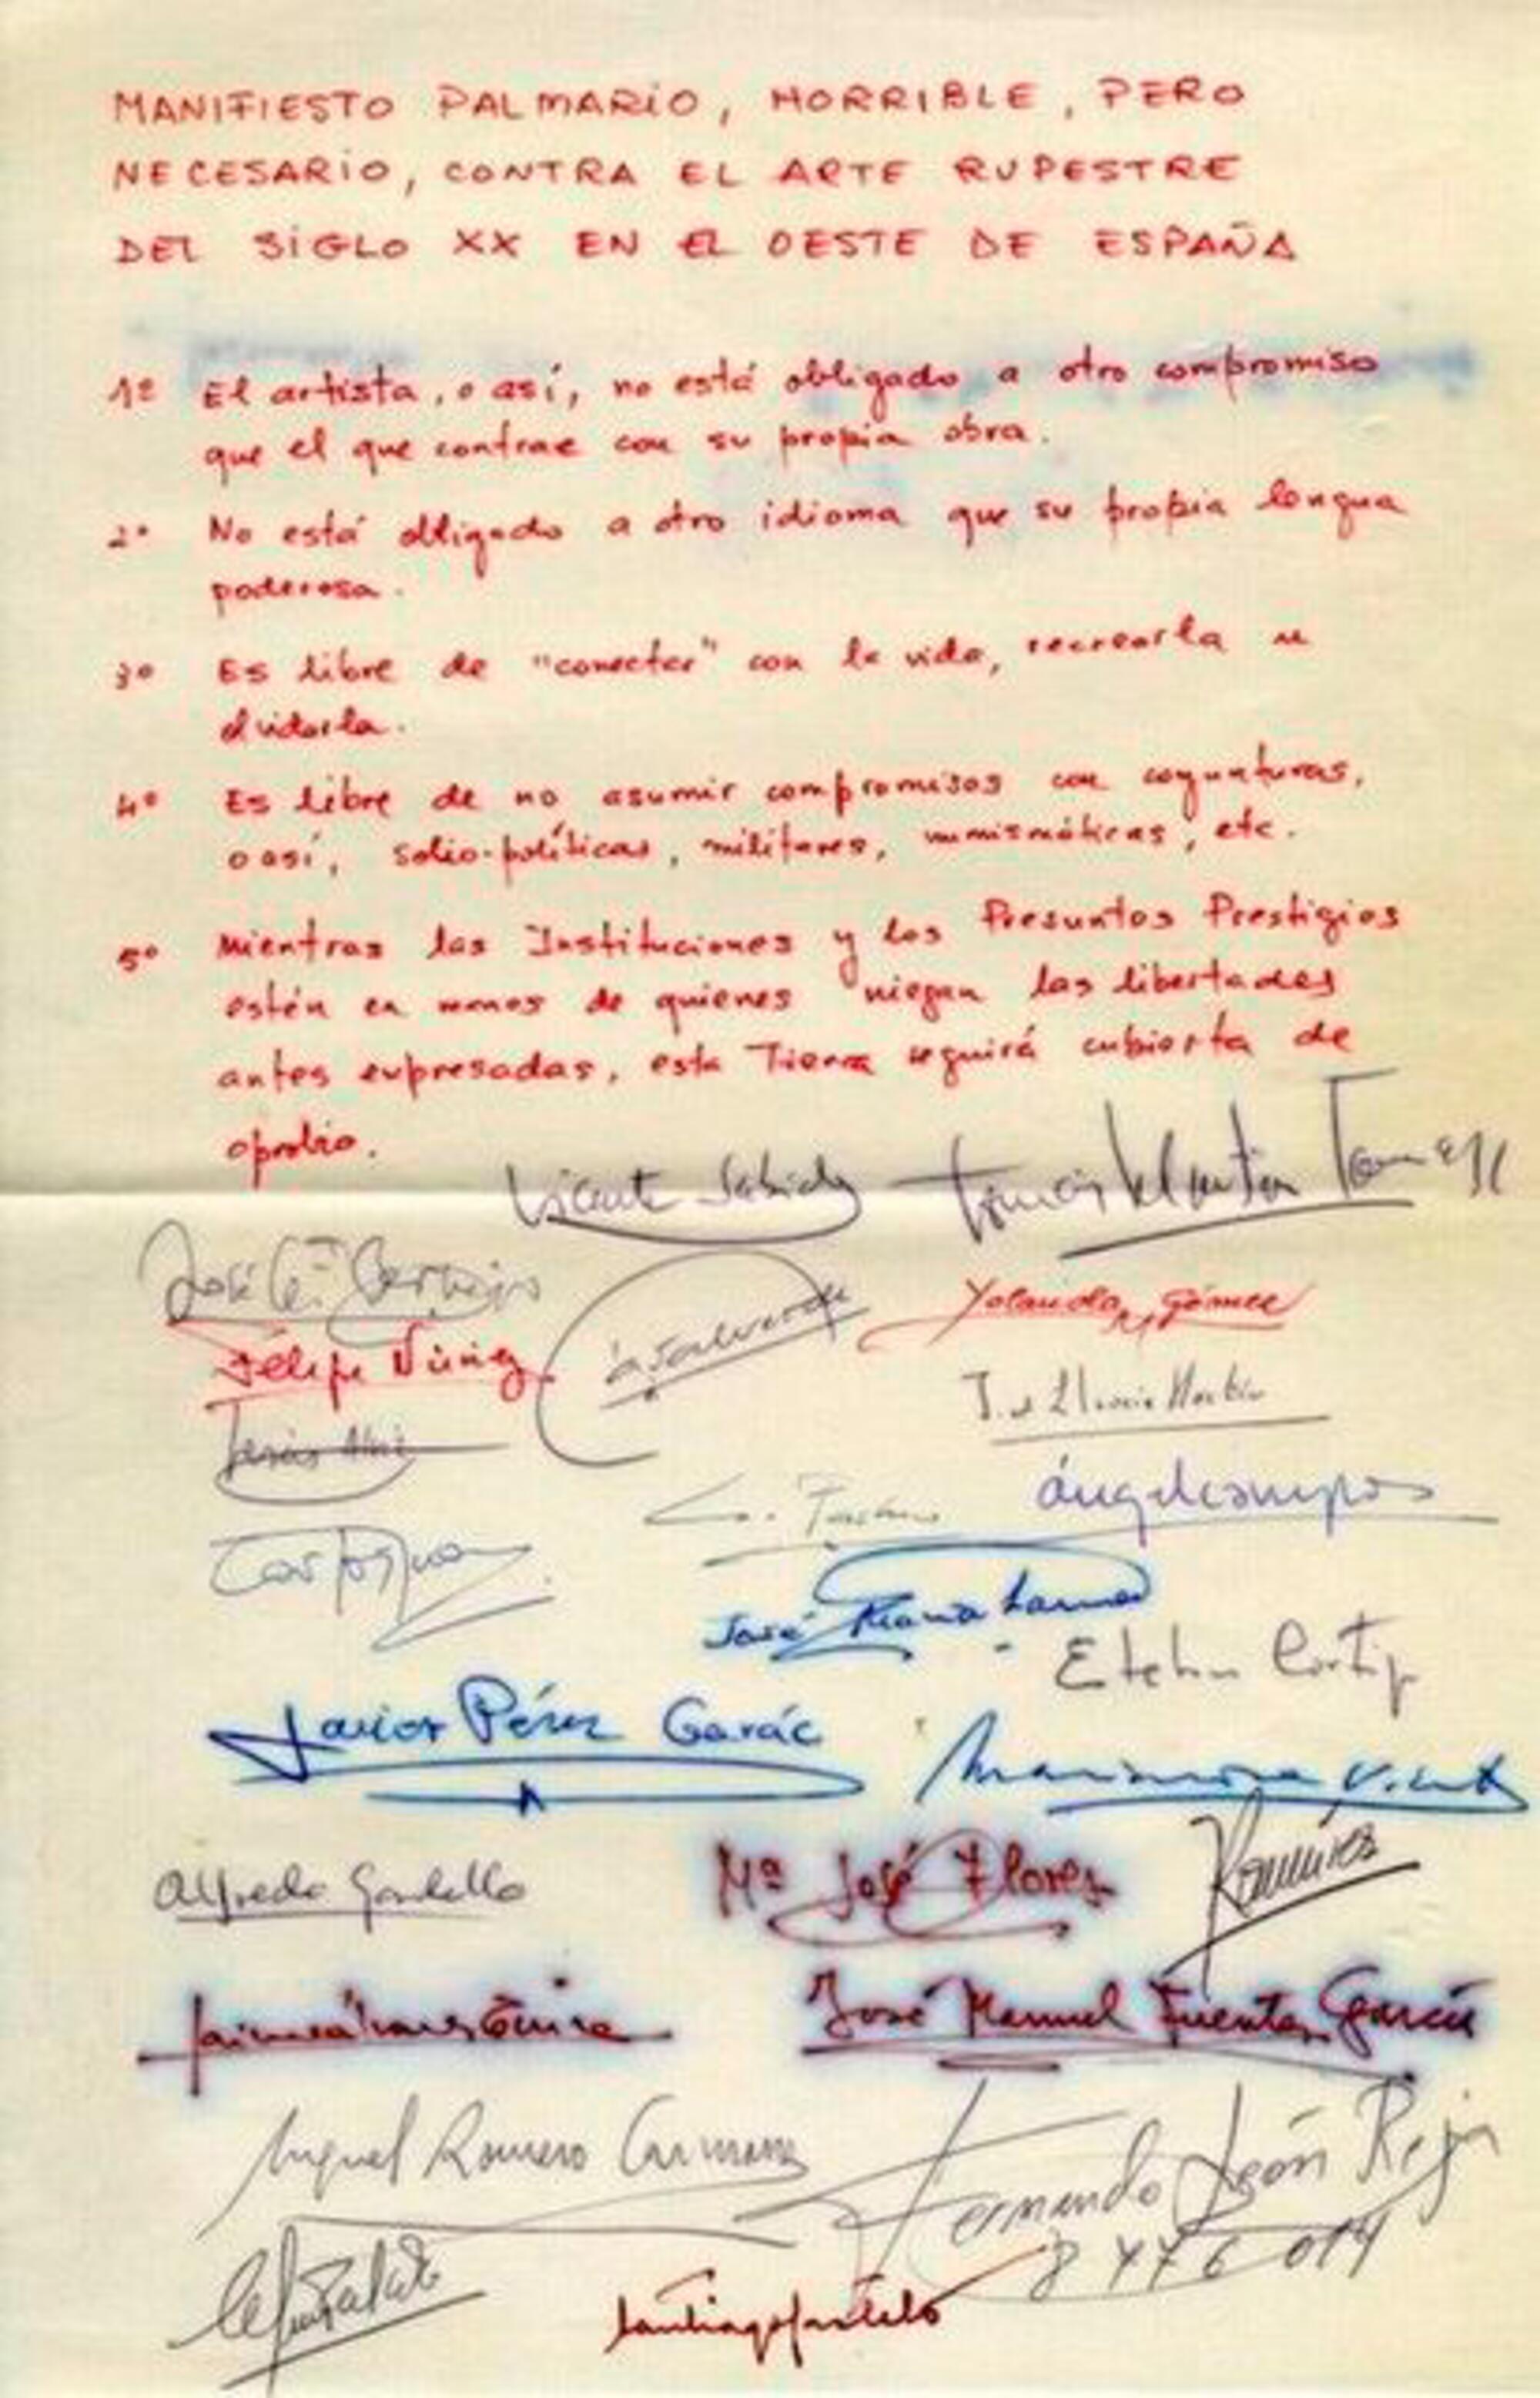 MANIFIESTO PALMARIO, HORRIBLE, PERO
NECESARIO, CONTRA EL ARTE RUPESTRE
DEL SIGLO XX EN EL OESTE DE ESPAÑA
1º El artista, o así, no está obligado a otro compromiso
que el que contrae con su propia obra.
2º No está obligado a otro idioma que su propia lengua
poderosa.
3º Es libre de "conectar" con la vida, recrearla u
olvidarla.
4º Es libre de no asumir compromisos con coyunturas,
o así, socio-políticas, militares, numismáticas, etc.
5º Mientras las Instituciones y los Presuntos Prestigios
estén en manos de quienes niegan las libertades
antes expresadas, esta Tierra seguirá cubierta de
oprobio.
Vicente Sabido Tomás Martín Tamayo
José
Felipe Núñez Casalverde Yolanda Gómez
Jesús
ángel campos
José María
Javier Pérez
Alfredo Mª José Flores Ramírez
José Manuel Fuentes García
Miguel Romero Fernando León Rejas
santiago castelo